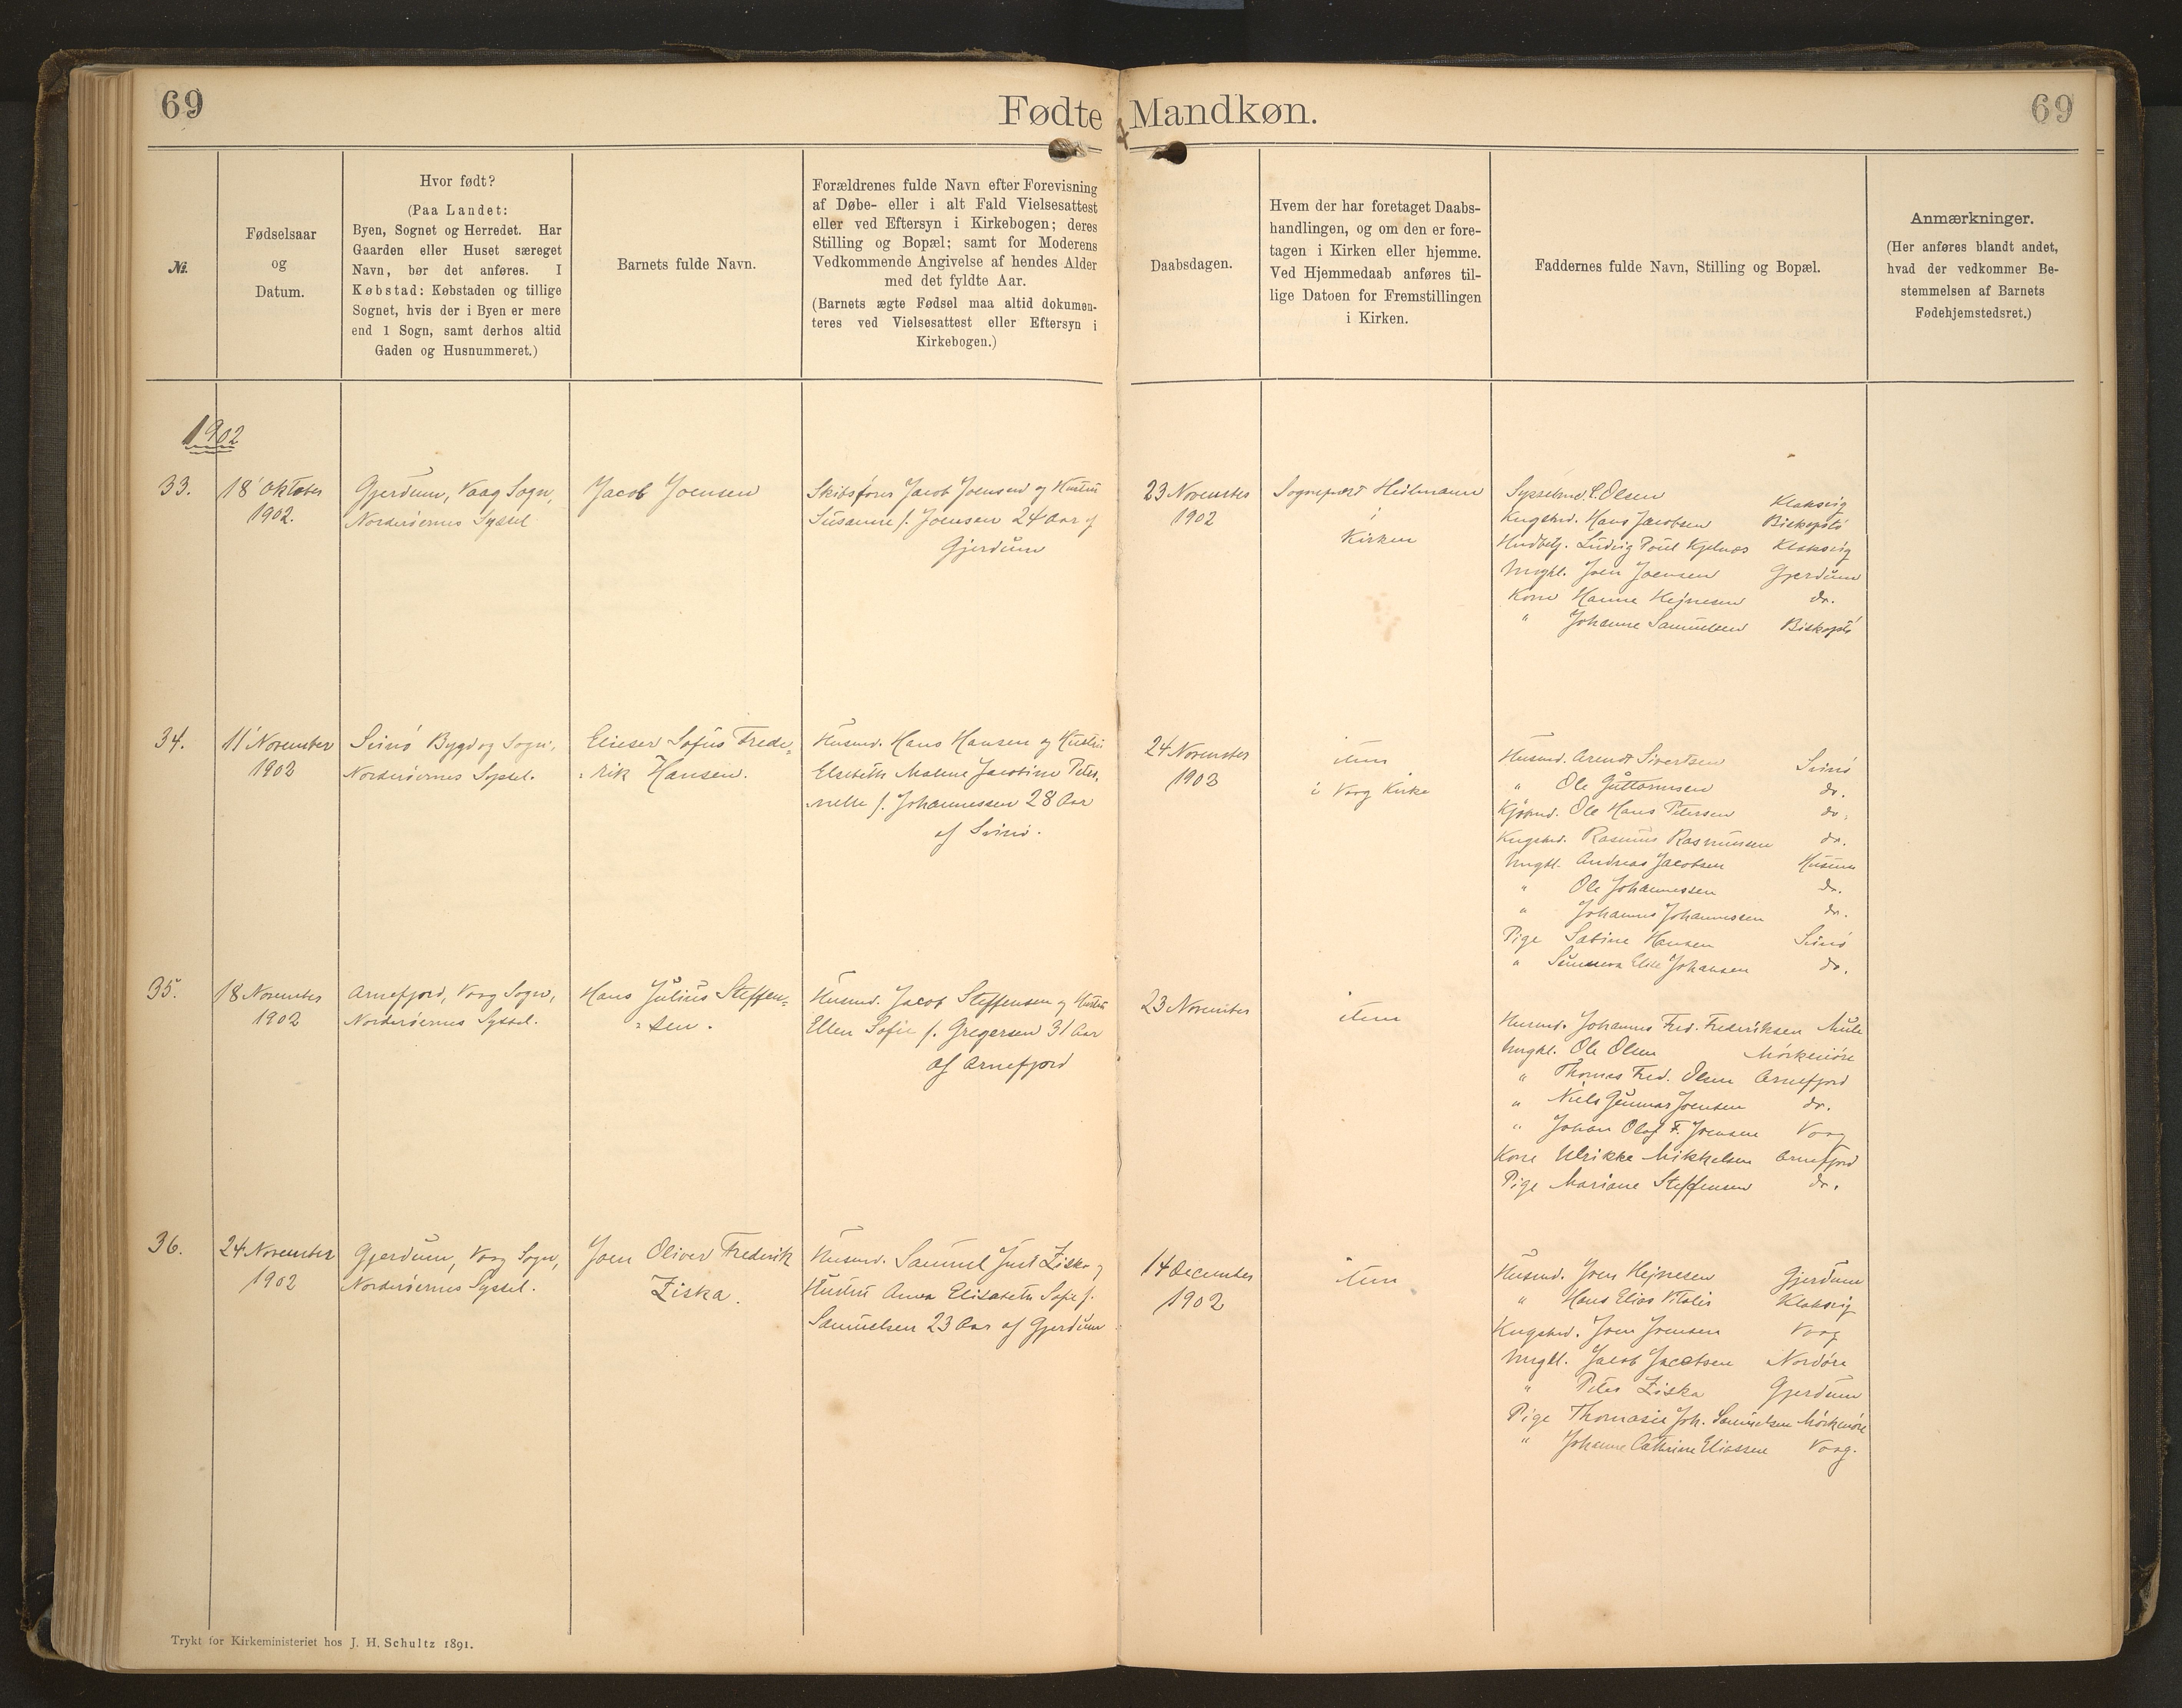 69
Fødte Mandkøn.
69
№.
Fødselsaar
og
Datum.
Hvor født?
(Paa Landet:
Byen, Sognet og Herredet. Har
Gaarden eller Huset særeget
Navn, bør det anføres. I
Købstad: Købstaden og tillige
Sognet, hvis der i Byen er mere
end 1 Sogn, samt derhos altid
Gaden og Husnummeret.)
Barnets fulde Navn.
Forældrenes fulde Navn efter Forevisning
af Døbe- eller i alt Fald Vielsesattest
eller ved Eftersyn i Kirkebogen; deres
Stilling og Bopæl; samt for Moderens
Vedkommende Angivelse af hendes Alder
med det fyldte Aar.
(Barnets ægte Fødsel maa altid dokumen-
teres ved Vielsesattest eller Eftersyn i
Kirkebogen.)
Daabsdagen.
Hvem der har foretaget Daabs-
handlingen, og om den er fore-
tagen i Kirken eller hjemme.
Ved Hjemmedaab anføres til-
lige Datoen for Fremstillingen
i Kirken.
Faddernes fulde Navn, Stilling og Bopæl.
Anmærkninger.
(Her anføres blandt andet,
hvad der vedkommer Be-
stemmelsen af Barnets
Fødehjemstedsret.)
1902
33.
18 Oktober
1902.
Gjerdum, Vaag Sogn,
Norderøernes Syssel
Jacob Joensen
Skibsfører Jacob Joensen og Hustru
Susanne f. Joensen 24 Aar af
Gjerdum
23 November
1902
Sognepræst Heilmann
i
Kirken
Sysselmd. E. Olsen Klaksvig
Kngsbd. Hans Jacobsen Biskopstø
Hndbetj. Ludvig Poul Kjølnæs Klaksvig
Ungkl. Joen Joensen Gjerdum
Kone Hanna Hejnesen do.
" Johanne Samuelsen Biskopstø
34.
11 November
1902
Svinø Bygd og Sogn,
Norderøernes Syssel.
Elieser Sofus Frede-
rik Hansen.
Husmd. Hans Hansen og Hustru
Elsebeth Malene Jacobine Peter-
nelle f. Johannessen 28 Aar
af Svinø.
24 November
1903
item
i Vaag Kirke
Husmd. Arendt Sivertsen Svinø
" Ole Guttormsen do.
Kjøbmd. Ole Hans Petersen do.
Kngsbd. Rasmus Rasmussen do.
Ungkl. Andreas Jacobsen Husum
" Ole Johannessen do.
" Johannes Johannessen do.
Pige Sabine Hansen Svinø
" Sunneva Elise Johansen do.
35.
18 November
1902
Arnefjord, Vaag Sogn,
Norderøernes Syssel.
Hans Julius Steffen-
sen.
Husmd. Jacob Steffensen og Hustru
Ellen Sofie f. Gregersen 31 Aar
af Arnefjord
23 November
item
Husmd. Johannes Fred. Frederiksen Mule
Ungkl. Ole Olsen Mørkenøre
" Thomas Fred. Olsen Arnefjord
" Niels Gunnar Joensen do.
" Johan Olof F. Joensen Vaag
Kone Ulrikke Mikkelsen Arnefjord
Pige Mariane Steffensen do.
36.
24 November
1902
Gjerdum, Vaag Sogn,
Norderøernes Syssel.
Joen Oliver Frederik
Ziska.
Husmd. Samuel Just Ziska og
Hustru Anna Elisabeth Sofie f.
Samuelsen 23 Aar af Gjerdum
14 December
1902
item
Husmd. Joen Hejnesen Gjerdum
" Hans Elias Vitalis Klaksvig
Kngsbd. Joen Joensen Vaag
Ungkl. Jacob Jacobsen Nordøre
" Peter Ziska Gjerdum
Pige Thomasie Joh. Samuelsen Mørkenøre
" Johanne Cathrine Eliassen Vaag.
Trykt for Kirkeministeriet hos J. H. Schultz 1891.